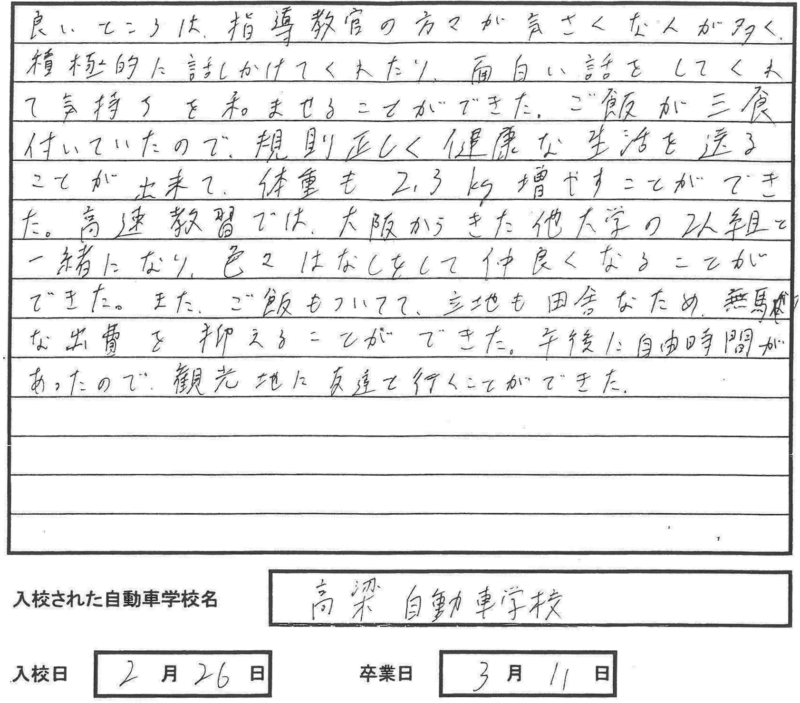 良いところは、指導教官の方々が気さくな人が多く、
積極的に話しかけてくれたり、面白い話をしてくれ
て気持ちを和ませることができた。ご飯が三食
付いていたので、規則正しく健康な生活を送る
ことが出来て、体重も2,3kg増やすことができ
た。高速教習では、大阪からきた他大学の2人組と
一緒になり、色々はなしをして仲良くなることが
できた。また、ご飯もついてて、立地も田舎なため、無駄
な出費を抑えることができた。午後に自由時間が
あったので、観光地に友達と行くことができた。
入校された自動車学校名 高梁自動車学校
入校日 2月26日 卒業日 3月11日